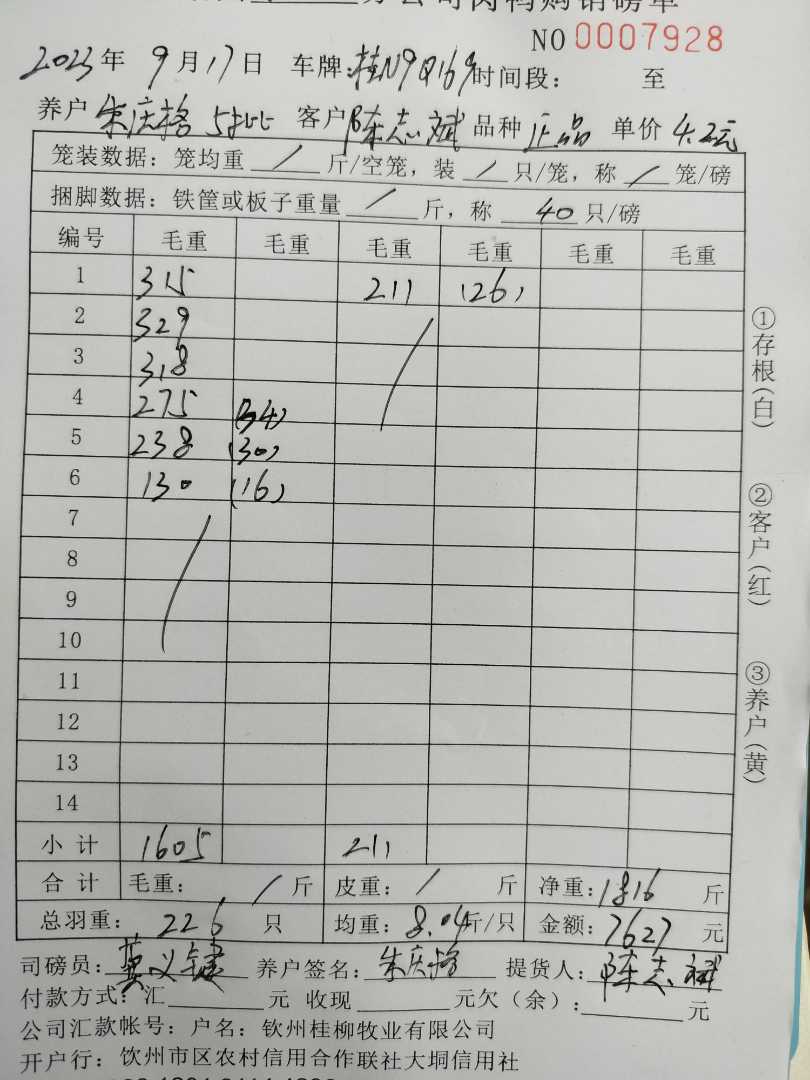 分公司肉鸭购销磅单
NO 0007928
2023年 9月17日 车牌:桂N9Q169 时间段: 至
养户 朱庆格 5批 客户 陈志斌 品种 正品 单价 4.2元
笼装数据: 笼均重 / 斤/空笼, 装 / 只/笼, 称 / 笼/磅
捆脚数据: 铁筐或板子重量 / 斤, 称 40 只/磅
编号 毛重 毛重 毛重 毛重 毛重 毛重
1 315 211 (26)
2 329
3 318
4 275 (34)
5 238 (30)
6 130 (16)
7
8
9
10
11
12
13
14
小计 1605 211
合计 毛重: / 斤 皮重: / 斤 净重: 1816 斤
总羽重: 226 只 均重: 8.04斤/只 金额: 7627 元
司磅员: 莫义键 养户签名: 朱庆格 提货人: 陈志斌
付款方式: 汇 元 收现 元欠(余): 元
公司汇款帐号: 户名: 钦州桂柳牧业有限公司
开户行: 饮州市区农村信用合作联社大垌信用社
①存根(白)
②客户(红)
③养户(黄)